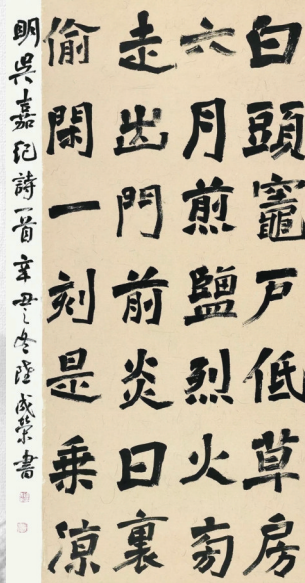 白頭竈戶低草房
六月煎鹽烈火旁
走出門前炎日裏
偷閑一刻是乘凉
明吳嘉紀詩一首辛丑之冬陸成榮書